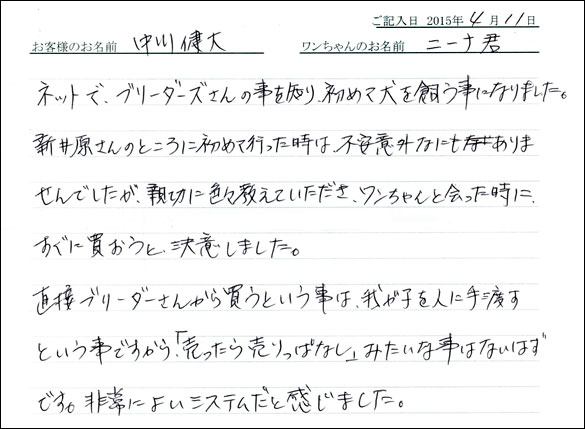 ご記入日 2015年 4月 11日
お客様のお名前 中川 健太 ワンちゃんのお名前 ニーナ君
ネットで、ブリーダーズさんの事を知り、初めて犬を飼う事になりました。
新井原さんのところに初めて行った時は、不安意外なにもありま
せんでしたが、親切に色々教えていただき、ワンちゃんと会った時に、
すぐに買おうと、決意しました。
直接ブリーダーさんから買うという事は、我が子を人に手渡す
という事ですから、「売ったら売りっぱなし」みたいな事はないはず
です。非常によいシステムだと感じました。